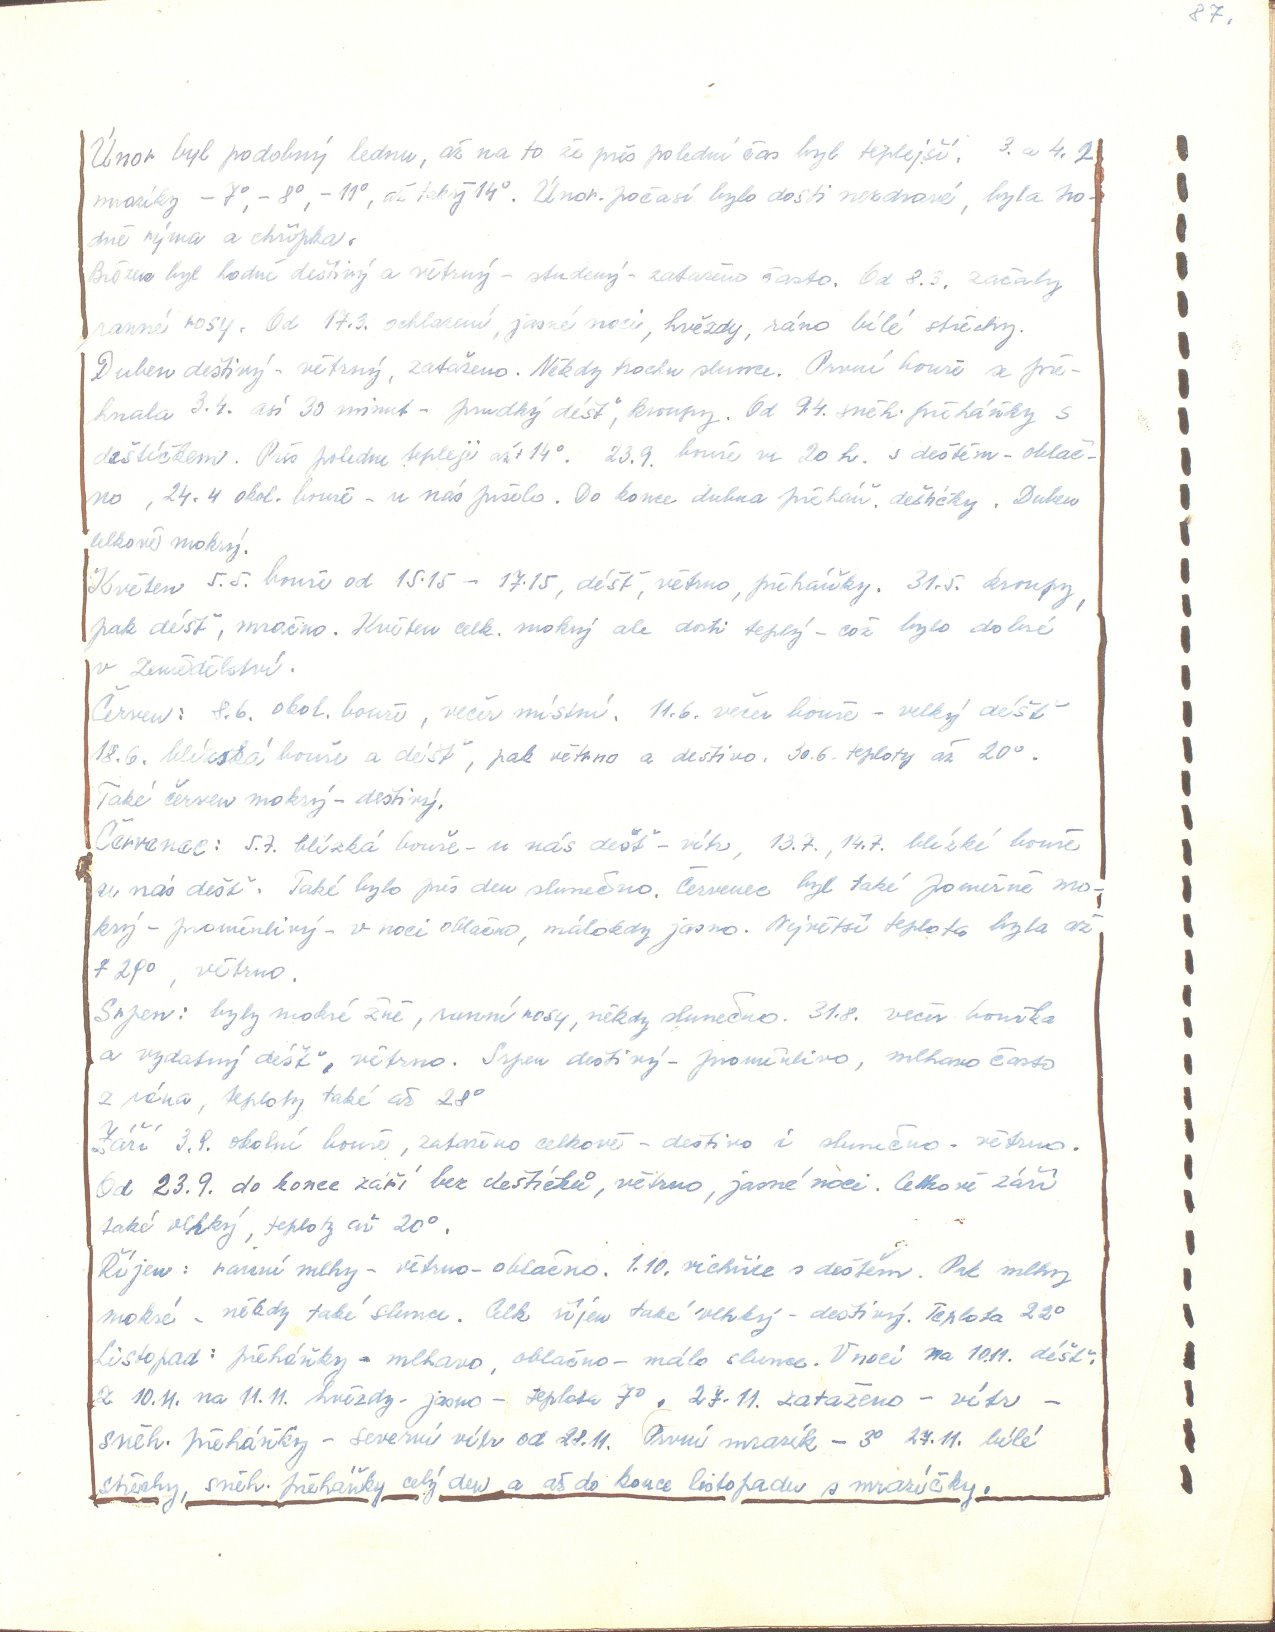 87.
Únor byl podobný lednu, až na to že přes polední čas byl teplejší. 3. a 4. 2
mrazíky – 7°, – 8°, – 11°, až 14°. Únor. počasí bylo dosti nezdravé, byla ho-
dně rýma a chřipka.
Březen byl hodně deštivý a větrný – studený – zataženo často. Od 8.3. začaly
ranné rosy. Od 17.3. ochlazení, jasné noci, hvězdy, ráno bílé střechy.
Duben deštivý – větrný, zataženo. Někdy trochu slunce. První bouře se pře-
hnala 3.4. asi 30 minut – prudký déšť, kroupy. Od 9.4. sněh. přeháňky s
deštíčkem. Přes poledne tepleji až + 14°. 23.9. bouře ve 20 h. s deštěm – oblač-
no, 24.4 okol. bouře – u nás pršelo. Do konce dubna přeháň. deštíčky. Duben
celkově mokrý.
Květen 5.5. bouře od 15.15 – 17.15, déšť, větrno, přeháňky. 31.5. kroupy,
pak déšť, mračno. Květen celk. mokrý ale dosti teplý – což bylo dobré
v zemědělství.
Červen: 8.6. okol. bouře, večer místní. 11.6. večer bouře – velký déšť
18.6. blízská bouře a déšť, pak větrno a deštivo. 30.6. teploty až 20°.
Také červen mokrý – deštivý.
Červenec: 5.7. blízká bouře – u nás dešť – vítr, 13.7., 14.7. blízké bouře
u nás dešť. Také bylo přes den slunečno. Červenec byl také poměrně mo-
krý – proměnlivý – v noci oblačno, málokdy jasno. Největší teplota byla až
+ 29°, větrno.
Srpen: byly mokré žně, ranní rosy, někdy slunečno. 31.8. večer bouřka
a vydatný déšť, větrno. Srpen deštivý – proměnlivo, mlhavo často
z rána, teploty také až 28°
Září 3.9. okolní bouře, zataženo celkově – deštivo i slunečno – větrno.
Od 23.9. do konce září bez deštíčků, větrno, jasné noci. Celkově září
také vlhký, teploty až 20°.
Říjen: ranní mlhy – větrno – oblačno. 1.10. vichřice s deštěm. Pak mlhy
mokré – někdy také slunce. Celk říjen také vlhký – deštivý. Teplota 22°
Listopad: přeháňky – mlhavo, oblačno – málo slunce. V noci na 10.11. déšť.
Z 10.11. na 11.11. hvězdy – jasno – teplota 7°. 27.11. zataženo – vítr –
sněh. přeháňky – severní vítr od 21.11. První mrazík – 3° 27.11. bílé
střechy, sněh. přeháňky celý den a až do konce listopadu s mrazíčky.